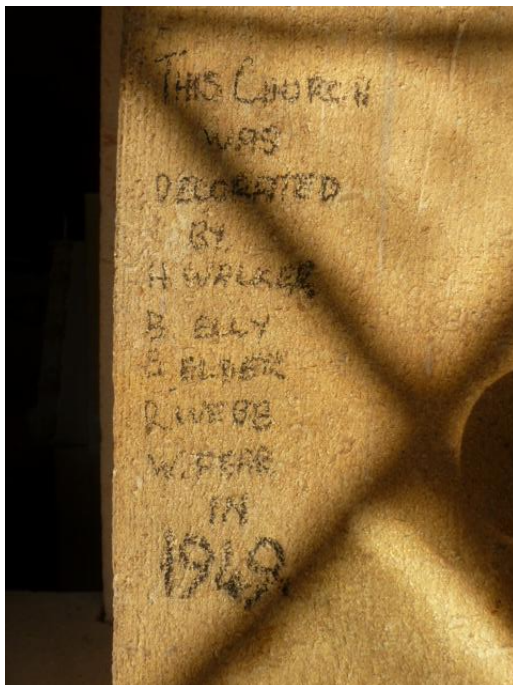 THIS CHURCH
WAS
DECORATED
BY
H WALKER
B ELLY
ELDER
R. WEBB
W. FEAR
IN
1949